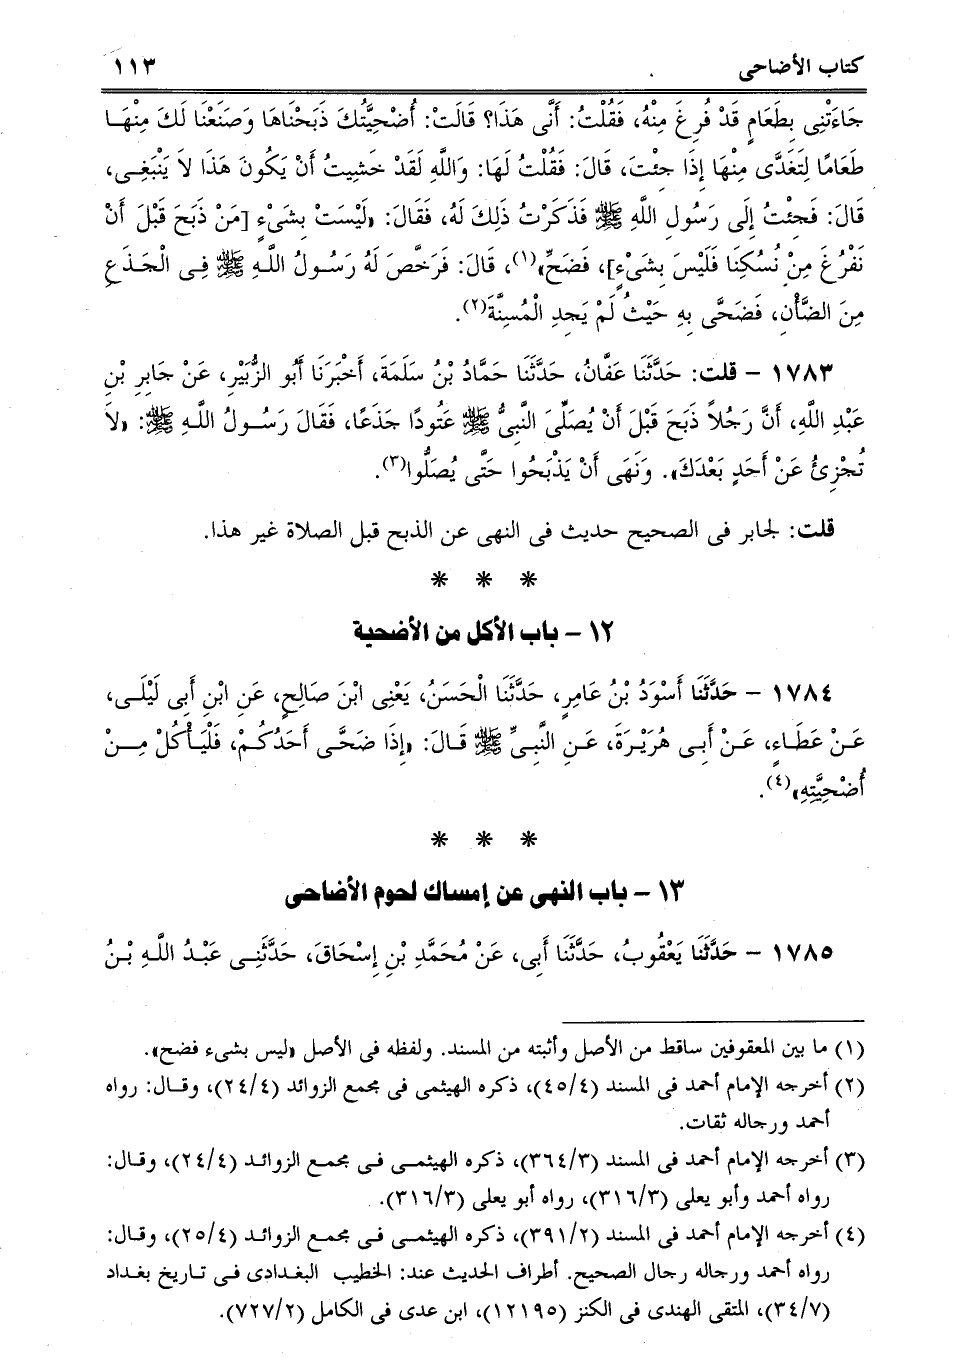 كتاب الأضاحى ١١٣
جَاءَتْنِى بِطَعَامٍ قَدْ فُرِغَ مِنْهُ، فَقُلْتُ: أَنَّى هَذَا؟ قَالَتْ: أُضْحِيَّتُكَ ذَبَحْنَاهَا وَصَنَعْنَا لَكَ مِنْهَا
طَعَامًا لِتَغَدَّى مِنْهَا إِذَا جِئْتَ، قَالَ: فَقُلْتُ لَهَا: وَاللَّهِ لَقَدْ خَشِيتُ أَنْ يَكُونَ هَذَا لاَ يَنْبَغِى،
قَالَ: فَجِئْتُ إِلَى رَسُولِ اللَّهِ ﷺ فَذَكَرْتُ ذَلِكَ لَهُ، فَقَالَ: «لَيْسَتْ بِشَىْءٍ [مَنْ ذَبَحَ قَبْلَ أَنْ
نَفْرُغَ مِنْ نُسُكِنَا فَلَيْسَ بِشَىْءٍ]، فَضَحِّ»(١)، قَالَ: فَرَخَّصَ لَهُ رَسُولُ اللَّهِ ﷺ فِى الْجَذَعِ
مِنَ الضَّأْنِ، فَضَحَّى بِهِ حَيْثُ لَمْ يَجِدِ الْمُسِنَّةَ(٢).
١٧٨٣ - قلت: حَدَّثَنَا عَفَّانُ، حَدَّثَنَا حَمَّادُ بْنُ سَلَمَةَ، أَخْبَرَنَا أَبُو الزُّبَيْرِ، عَنْ جَابِرِ بْنِ
عَبْدِ اللَّهِ، أَنَّ رَجُلاً ذَبَحَ قَبْلَ أَنْ يُصَلِّىَ النَّبِىُّ ﷺ عَتُودًا جَذَعًا، فَقَالَ رَسُولُ اللَّهِ ﷺ: «لاَ
تُجْزِئُ عَنْ أَحَدٍ بَعْدَكَ». وَنَهَى أَنْ يَذْبَحُوا حَتَّى يُصَلُّوا(٣).
قلت: لجابر فى الصحيح حديث فى النهى عن الذبح قبل الصلاة غير هذا.
* * *
١٢ - باب الأكل من الأضحية
١٧٨٤ - حَدَّثَنَا أَسْوَدُ بْنُ عَامِرٍ، حَدَّثَنَا الْحَسَنُ، يَعْنِى ابْنَ صَالِحٍ، عَنِ ابْنِ أَبِى لَيْلَى،
عَنْ عَطَاءٍ، عَنْ أَبِى هُرَيْرَةَ، عَنِ النَّبِىِّ ﷺ قَالَ: «إِذَا ضَحَّى أَحَدُكُمْ، فَلْيَأْكُلْ مِنْ
أُضْحِيَّتِهِ»(٤).
* * *
١٣ - باب النهى عن إمساك لحوم الأضاحى
١٧٨٥ - حَدَّثَنَا يَعْقُوبُ، حَدَّثَنَا أَبِى، عَنْ مُحَمَّدِ بْنِ إِسْحَاقَ، حَدَّثَنِى عَبْدُ اللَّهِ بْنُ
(١) ما بين المعقوفين ساقط من الأصل وأثبته من المسند. ولفظه فى الأصل «ليس بشىء فضح».
(٢) أخرجه الإمام أحمد فى المسند (٤٥/٤)، ذكره الهيثمى فى مجمع الزوائد (٢٤/٤)، وقال: رواه
أحمد ورجاله ثقات.
(٣) أخرجه الإمام أحمد فى المسند (٣٦٤/٣)، ذكره الهيثمى فى مجمع الزوائد (٢٤/٤)، وقال:
رواه أحمد وأبو يعلى (٣١٦/٣)، رواه أبو يعلى (٣١٦/٣).
(٤) أخرجه الإمام أحمد فى المسند (٣٩١/٢)، ذكره الهيثمى فى مجمع الزوائد (٢٥/٤)، وقال:
رواه أحمد ورجاله رجال الصحيح. أطراف الحديث عند: الخطيب البغدادى فى تاريخ بغداد
(٣٤/٧)، المتقى الهندى فى الكنز (١٢١٩٥)، ابن عدى فى الكامل (٧٢٧/٢).